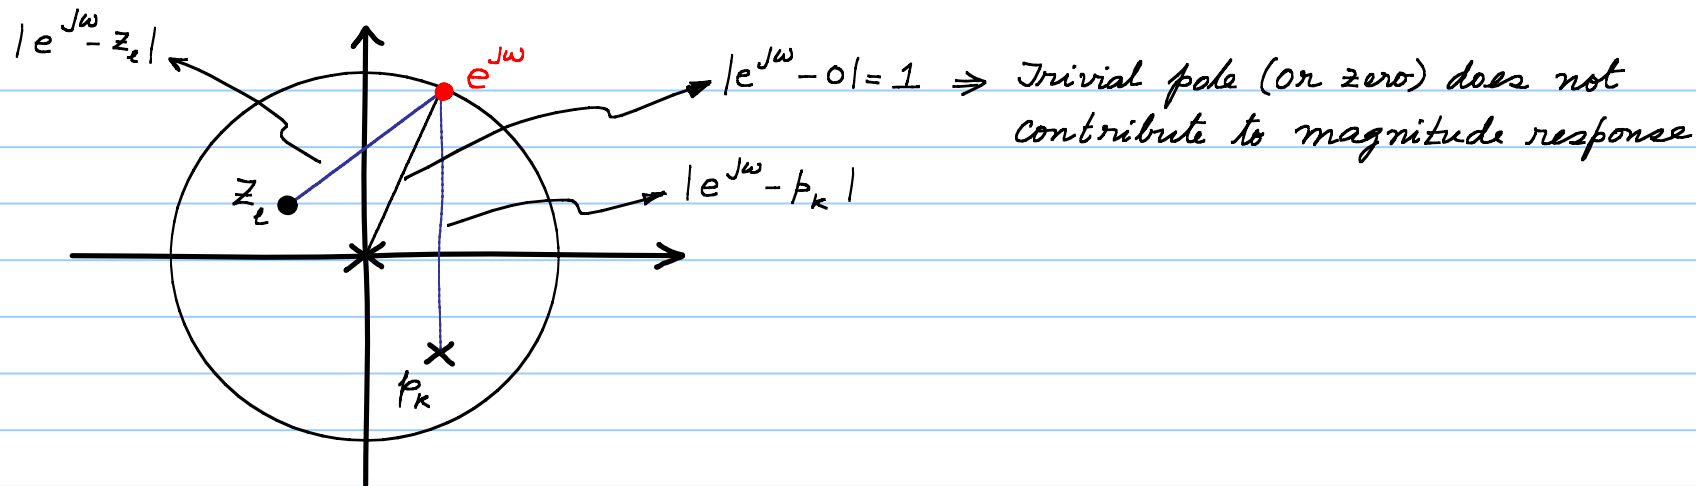 |e^{jω} - z_ℓ|
e^{jω}
|e^{jω} - 0| = 1 ⇒ Trivial pole (or zero) does not
contribute to magnitude response
|e^{jω} - p_k|
z_ℓ
p_k